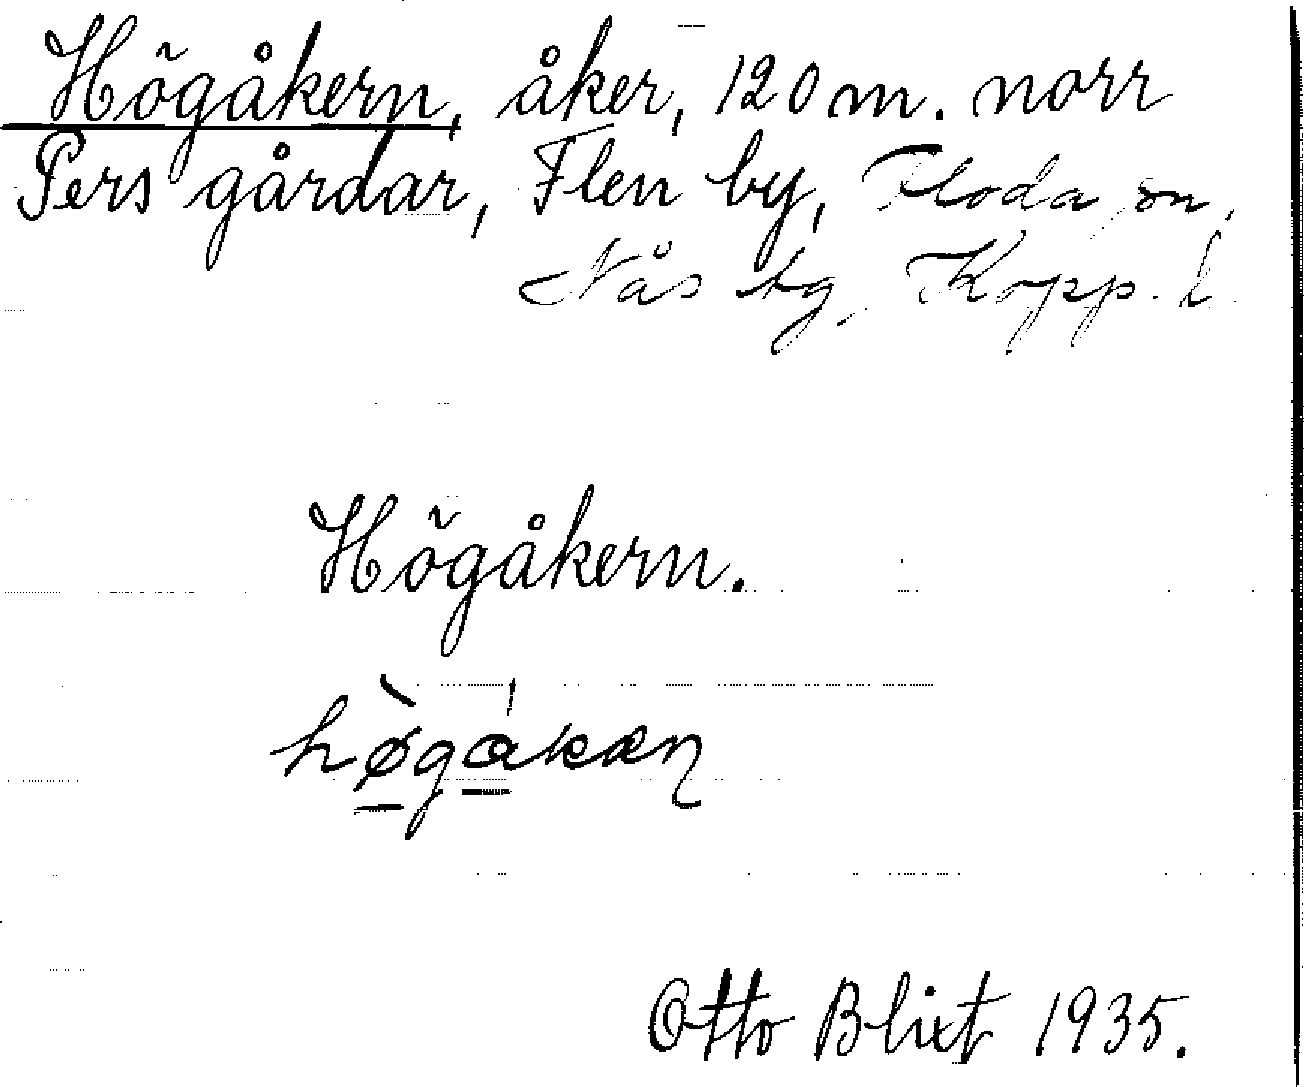 Högåkern, åker, 120 m. norr
Pers gårdar, Flen by, Floda sn,
Nås tg, Kopp. l.
Högåkern.
Otto Blixt 1935.